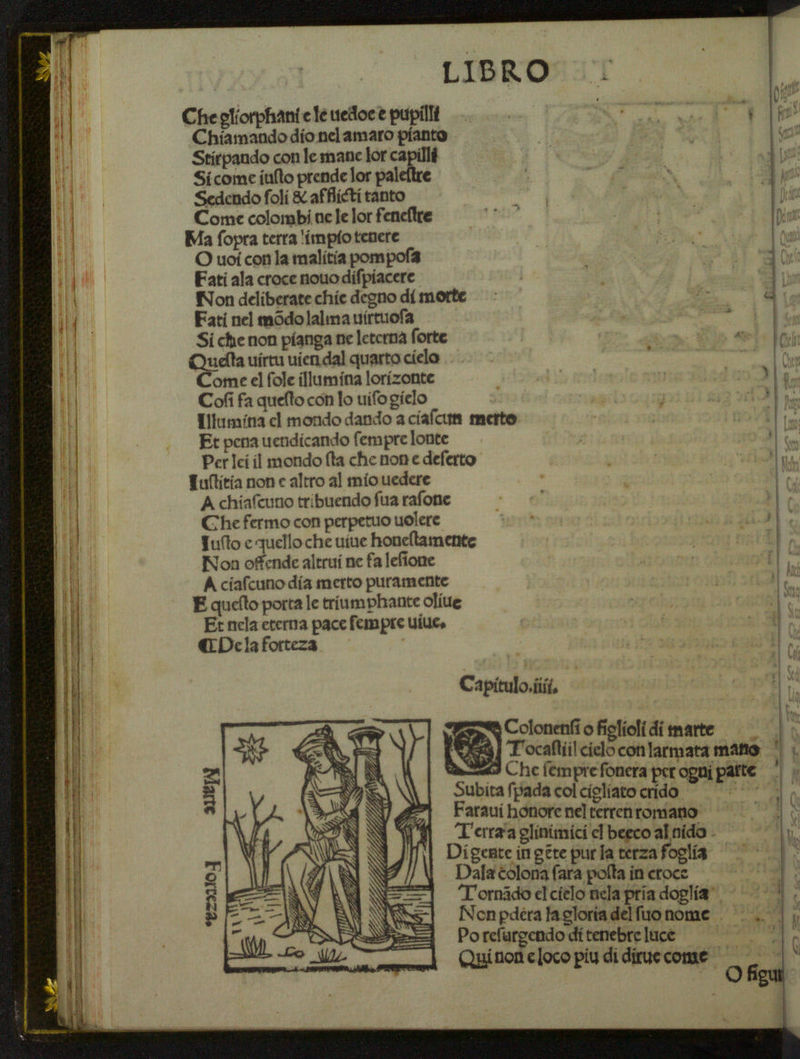 LIBRO
Che gliorphani e le uedoe e pupilli
Chiamando dio nel amaro pianto
Stirpando con le mane lor capilli
Si come iuſto prende lor paleſtre
Sedendo ſoli & afflicti tanto
Come colombi ne le lor feneſtre
Ma ſopra terra limpio tenere
O uoi con la malitia pompoſa
Fati ala croce nouo diſpiacere
Non deliberate chie degno di morte
Fati nel mōdo lalma uirtuoſa
Si che non pianga ne leterna ſorte
Queſta uirtu uien dal quarto cielo
Come el ſole illumina lorizonte
Coſi fa queſto con lo uiſo gielo
Illumina el mondo dando a ciaſcun merto
Et pena uendicando ſempre lonte
Per lei il mondo ſta che non e deſerto
Iuſtitia non e altro al mio uedere
A chiaſcuno tribuendo ſua raſone
Che fermo con perpetuo uolere
Iuſto e quello che uiue honeſtamente
Non offende altrui ne fa leſione
A ciaſcuno dia merto puramente
E queſto porta le triumphante oliue
Et nela eterna pace ſempre uiue.
¶De la forteza
Capitulo.iiii.
Marte Forteza.
O Colonenſi o figlioli di marte
Tocaſti il cielo con larmata mano
Che ſempre ſonera per ogni parte
Subita ſpada col cigliato crido
Faraui honore nel terren romano
Terra a glinimici el becco al nido
Di gente in gēte pur la terza foglia
Dala colona ſara poſta in croce
Tornādo el cielo nela pria doglia
Non pdera la gloria del ſuo nome
Po reſurgendo di tenebre luce
Qui non e loco piu di dirue come
O figur